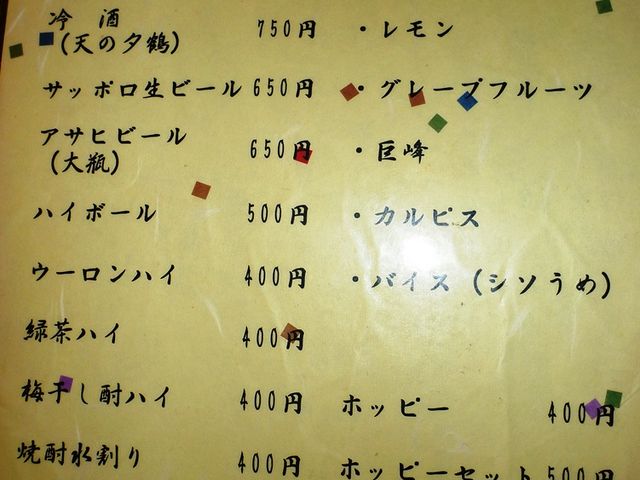 冷酒 750円
(天の夕鶴)
サッポロ生ビール 650円
アサヒビール 650円
(大瓶)
ハイボール 500円
ウーロンハイ 400円
緑茶ハイ 400円
梅干し酎ハイ 400円
焼酎水割り 400円
・レモン
・グレープフルーツ
・巨峰
・カルピス
・バイス (シソうめ)
ホッピー 400円
ホッピーセット 500円